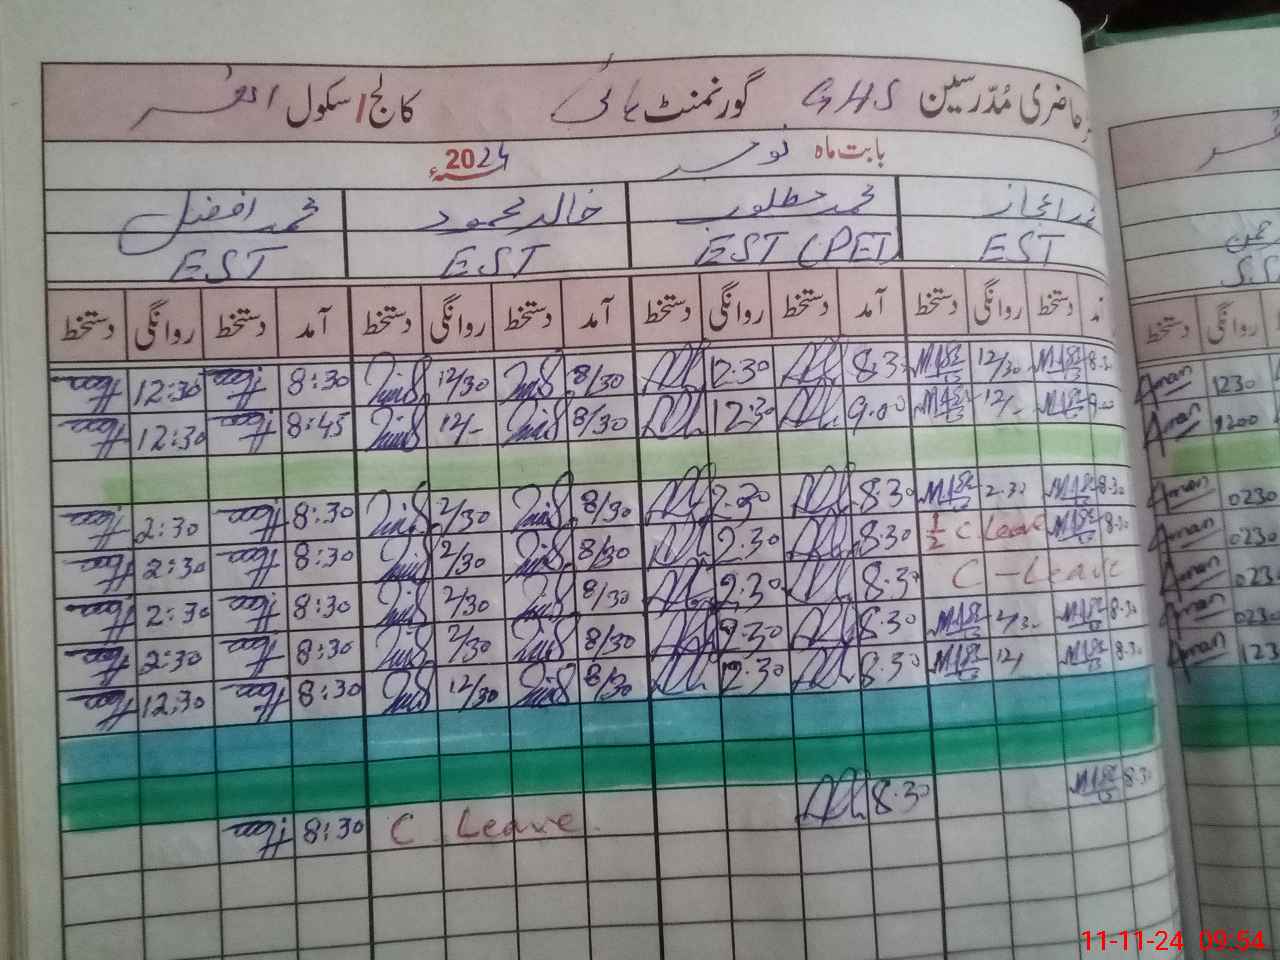 حاضری مُدّرسین GHS گورنمنٹ ہائی کالج/سکول
بابت ماہ نومبر 2024ء
محمد اعجاز محمد مطلوب خالد محمود محمد افضل
EST EST (PET) EST EST
آمد دستخط روانگی دستخط آمد دستخط روانگی دستخط آمد دستخط روانگی دستخط آمد دستخط روانگی دستخط
8:30 12/30 8.30 12.30 8/30 12/30 8:30 12:30
9.00 12/- 9.00 12.30 8/30 12/- 8:45 12:30
8.30 2.30 8.30 2.30 8/30 2/30 8:30 2:30
8.30 1/2 C. Leave 8.30 2.30 8/30 2/30 8:30 2:30
C - Leave 8.30 2.30 8/30 2/30 8:30 2:30
8.30 2/30 8.30 2.30 8/30 2/30 8:30 2:30
8.30 12/ 8.30 12.30 8/30 12/30 8:30 12:30
8.30 8.30 C. Leave 8:30
روانگی دستخط
1230 Aman
1200 Aman
0230 Aman
0230 Aman
0230 Aman
0230 Aman
123 Aman
11-11-24 09:54